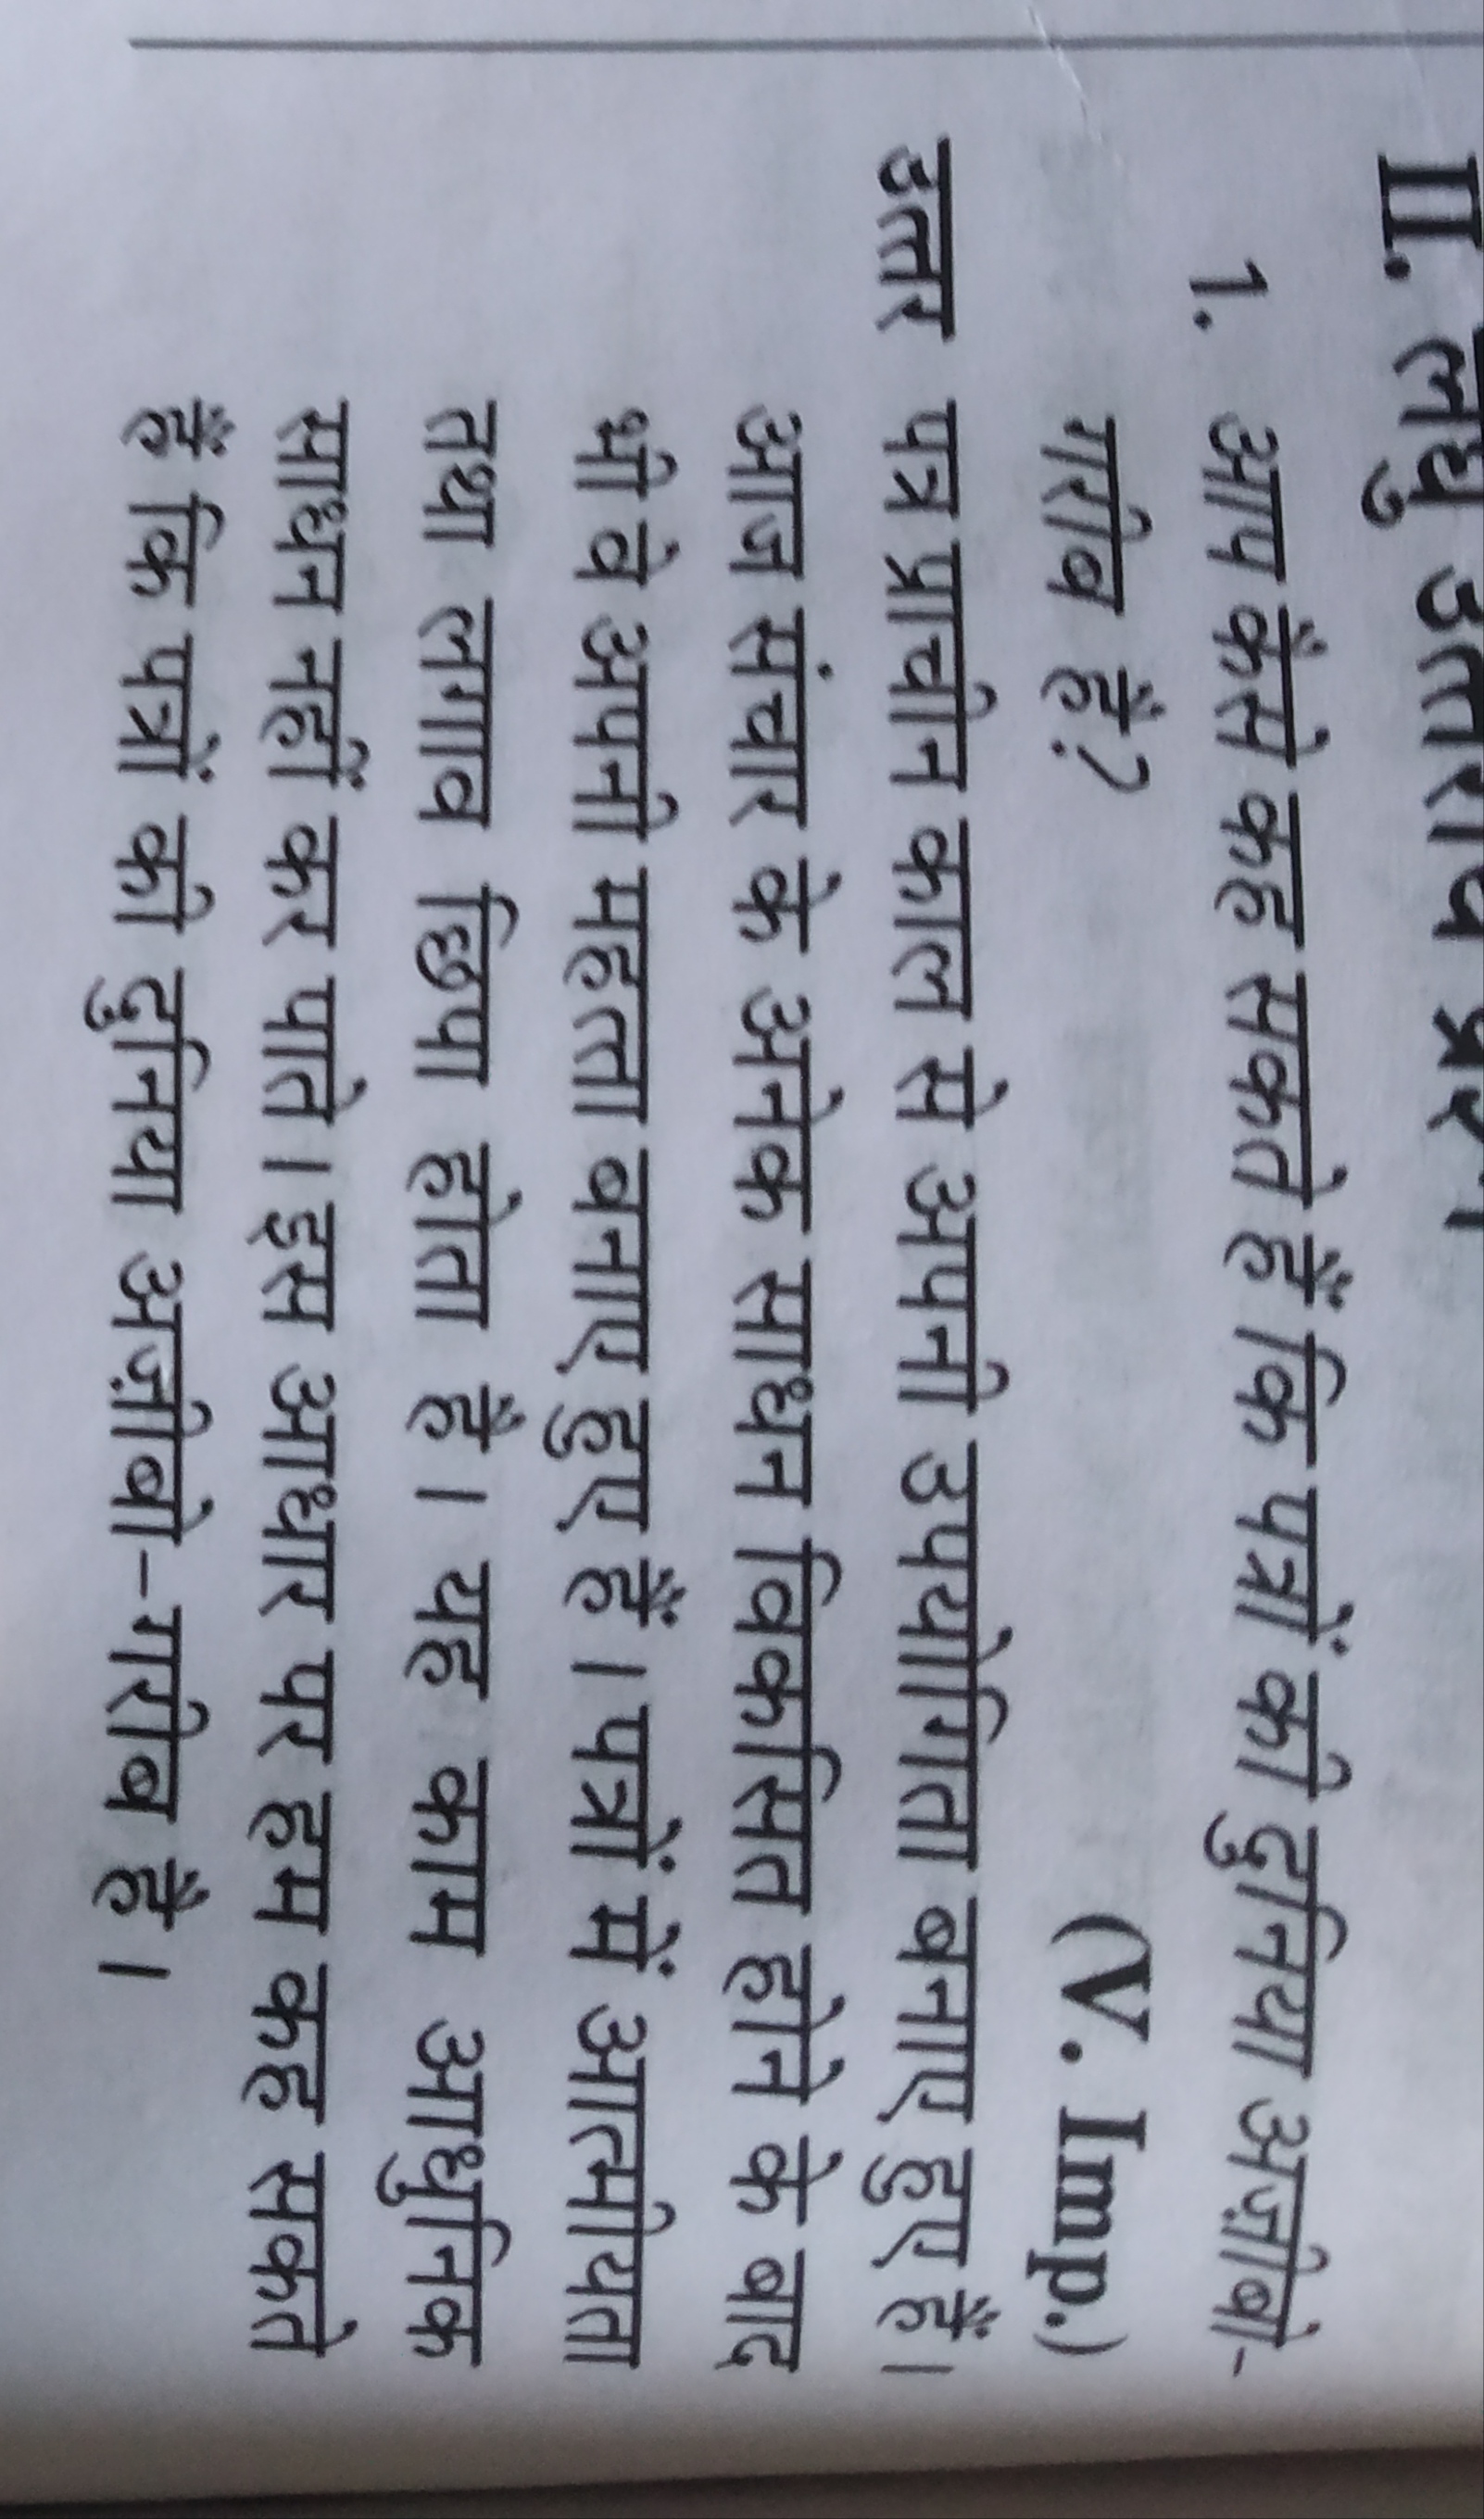 II. लघु उत्तरीय प्रश्न
1. आप कैसे कह सकते हैं कि पत्रों की दुनिया अज़ीबो-
गरीब है? (V. Imp.)
उत्तर पत्र प्राचीन काल से अपनी उपयोगिता बनाए हुए हैं।
आज संचार के अनेक साधन विकसित होने के बाद
भी वे अपनी महत्ता बनाए हुए हैं। पत्रों में आत्मीयता
तथा लगाव छिपा होता है। यह काम आधुनिक
साधन नहीं कर पाते। इस आधार पर हम कह सकते
हैं कि पत्रों की दुनिया अज़ीबो-गरीब है।